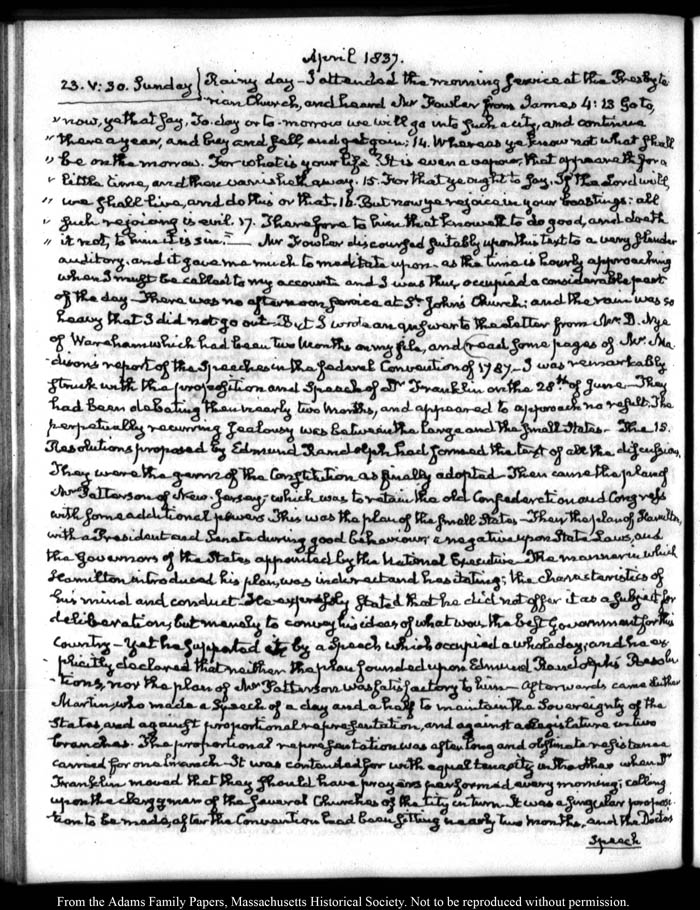 April 1837.
23. V:30. Sunday} Rainy day – I attended the morning service at the Presbyte
rian Church, and heard Mr Fowler from James 4:13 Go to,
" now, ye that say, To-day or to-morrow we will go into such a city, and continue
" there a year, and buy and sell, and get gain: 14. Whereas ye know not what shall
" be on the morrow. For what is your life? It is even a vapour, that appeareth for a
" little time, and then vanisheth away. 15. For that ye ought to say, If the Lord will,
" we shall live, and do this or that. 16. But now ye rejoice in your boastings: all
" such rejoicing is evil. 17. Therefore to him that knoweth to do good, and doeth
" it not, to him it is sin." – Mr Fowler discoursed suitably upon this text to a very slender
auditory, and it gave me much to meditate upon as the time is hourly approaching
when I must be called to my account and I was thus occupied a considerable part
of the day – There was no afternoon service at St. John's Church: and the rain was so
heavy that I did not go out – But I wrote an answer to the Letter from Mr. D. Nye
of Wareham which had been two Months on my file, and read some pages of Mr. Ma-
dison's report of the Speeches in the federal Convention of 1787 – I was remarkably
struck with the proposition and Speech of Dr Franklin on the 28th of June – They
had been debating then nearly two Months, and appeared to approach no result. The
perpetually recurring jealousy was between the large and the small States – The 15.
Resolutions proposed by Edmund Randolph had formed the text of all the discussion.
They were the germ of the Constitution as finally adopted – Then came the plan of
Mr Patterson of New-Jersey; which was to retain the old Confederation and Congress
with some additional powers. This was the plan of the small States – Then the plan of Hamilton,
with a President and Senate during good behaviour, a negative upon State Laws, and
the Governors of the States appointed by the National Executive – The manner in which
Hamilton introduced his plan, was indirect and hesitating; the characteristics of
his mind and conduct – He expressly stated that he did not offer it as a subject for
deliberation, but merely to convey his ideas of what was the best Government for this
Country – Yet he supported it by a Speech which occupied a whole day, and he ex-
plicitly declared that neither the plan founded upon Edmund Randolph's Resolu-
tions, nor the plan of Mr Patterson was satisfactory to him – Afterwards came Luther
Martin, who made a Speech of a day and a half to maintain the Sovereignty of the
States, and against proportional representation, and against a Legislature in two
branches. The proportional representation was after long and obstinate resistance
carried for one branch – It was contended for with equal tenacity in the other when Dr
Franklin moved that they should have prayers performed every morning; calling
upon the clergymen of the several Churches of the City in turn. It was a singular proposi-
tion to be made, after the Convention had been sitting nearly two months, and the Doctors
Speech
From the Adams Family Papers, Massachusetts Historical Society. Not to be reproduced without permission.